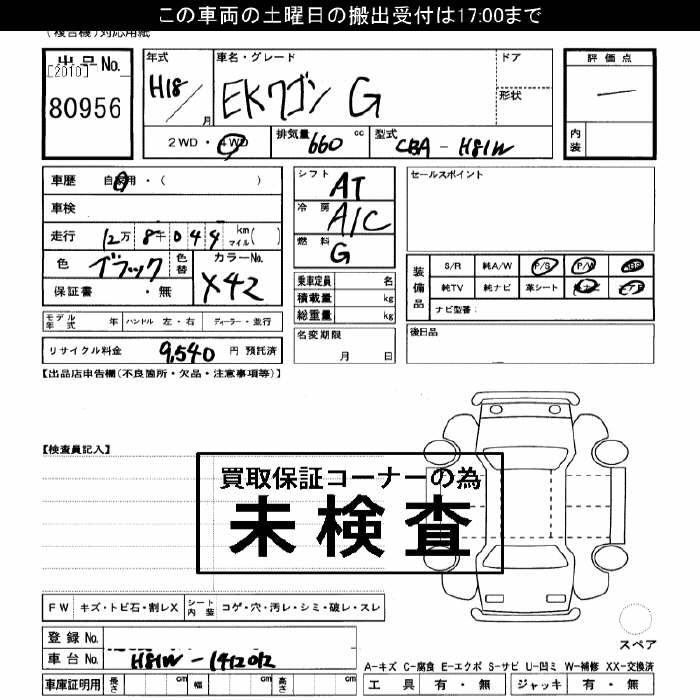 この車両の土曜日の搬出受付は17:00まで
(複合機)対応用紙
出品No.
[2010]
80956
年式 H18 / 月
車名・グレード EKワゴン G
ドア
形状
2WD・4WD
排気量 660 cc
型式 CBA-H81W
評価点
―
内装
車歴 自家用・( )
車検
走行 12万8千044 km マイル( )
色 ブラック 色替
カラーNo. X42
保証書 ・無
モデル年式 年 ハンドル 左・右 ディーラー・並行
リサイクル料金 9,540 円 預託済
シフト AT
冷房 A/C
燃料 G
乗車定員 名
積載量 kg
総重量 kg
名変期限
月 日
セールスポイント
装備品
S/R 純A/W P/S P/W ABS
純TV 純ナビ 革シート
ナビ型番:
後日品
【出品店申告欄(不良箇所・欠品・注意事項等)】
【検査員記入】
買取保証コーナーの為
未検査
FW キズ・トビ石・割レX シート内装 コゲ・穴・汚レ・シミ・破レ・スレ
登録No.
車台No. H81W-1412012
車庫証明用 長さ cm 幅 cm 高さ cm
スペア
A-キズ C-腐食 E-エクボ S-サビ U-凹ミ W-補修 XX-交換済
工具 有・無 ジャッキ 有・無